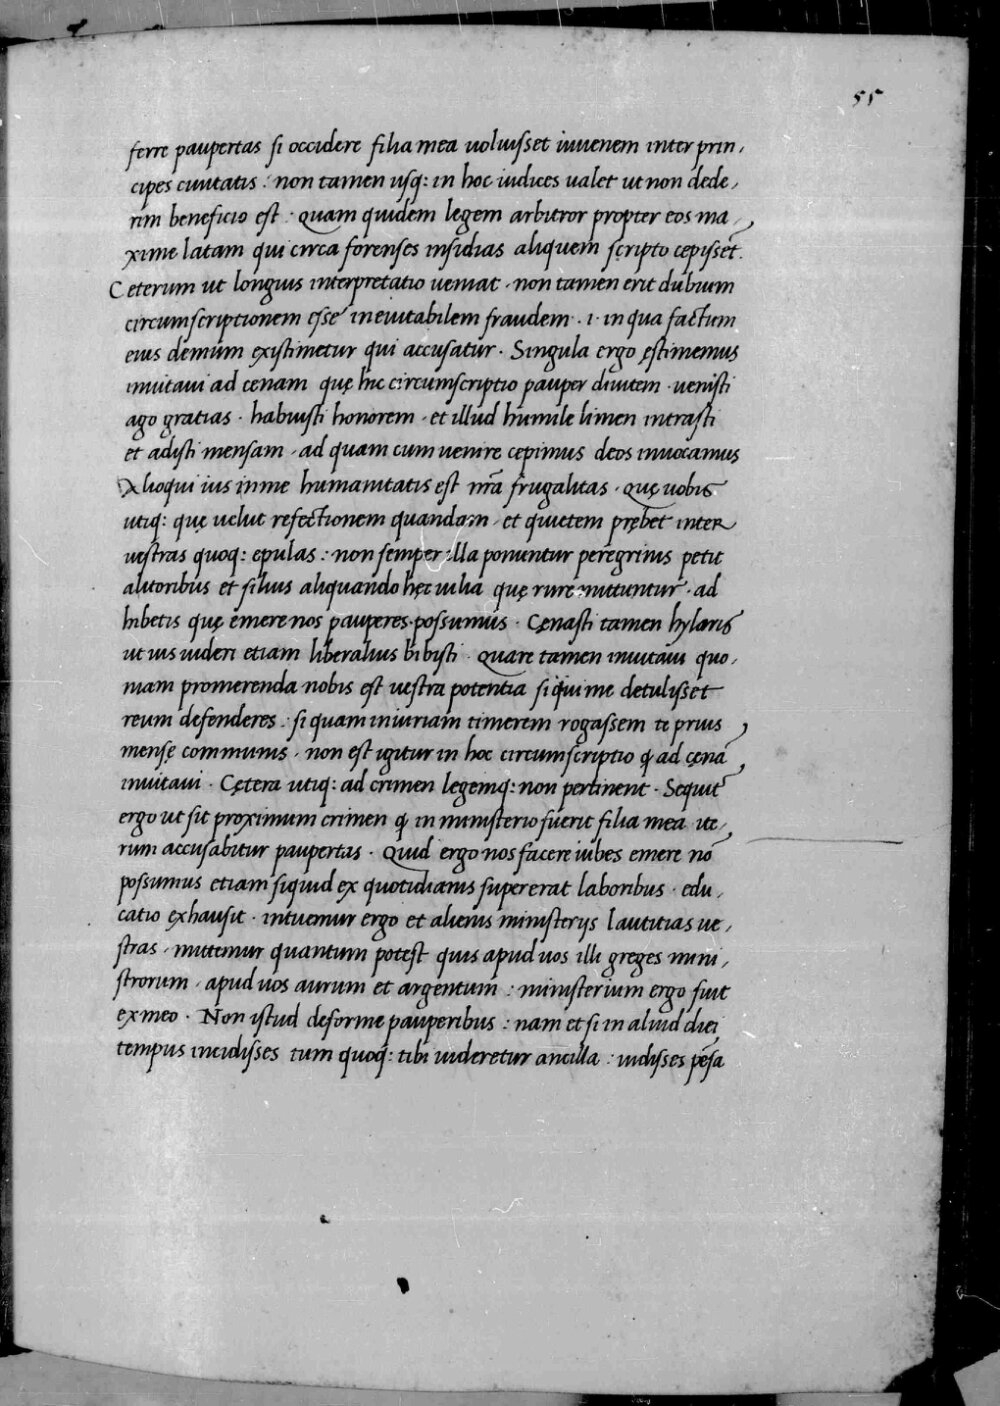 55
ferre paupertas si occidere filia mea uoluisset iuuenem inter prin,
cipes ciuitatis : non tamen usq: in hoc iudices ualet ut non dede,
rim beneficio est . Quam quidem legem arbitror propter eos ma,
xime latam qui circa forenses insidias aliquem scripto cepisset.
Ceterum ut longius interpretatio ueniat . non tamen erit dubium
circumscriptionem esse ineuitabilem fraudem . i . in qua factum
eius demum existimetur qui accusatur . Singula ergo ęstimemus
inuitaui ad cenam quę hic circumscriptio pauper diuitem . uenisti
ago gratias . habuisti honorem . et illud humile limen intrasti
et adisti mensam . ad quam cum uenire cepimus deos inuocamus
Alioqui ius in me humanitatis est nr̃a frugalitas . Quę uobis
utiq: quę uelut refectionem quandam . et quietem prębet inter
uestras quoq: epulas : non semper illa ponuntur peregrinis petit
alitoribus et siluis aliquando hęc uilia quę rure mittuntur . ad
hibetis quę emere nos pauperes possumus . Cęnasti tamen hylaris
ut uis uideri etiam liberalius bibisti . Quare tamen inuitaui quo,
niam promerenda nobis est uestra potentia si qui me detulisset
reum defenderes . si quam iniuriam timerem rogassem te prius
mensę communis . non est igitur in hoc circumscriptio ꝙ ad cęnā
inuitaui . Cętera utiq: ad crimen legemq: non pertinent . Sequit̃
ergo ut sit proximum crimen ꝙ in ministerio fuerit filia mea ite,
rum accusabitur paupertas . Quid ergo nos facere iubes emere nō
possumus etiam siquid ex quotidianis supererat laboribus . edu,
catio exhausit . intuemur ergo et alienis ministerijs lautitias ue,
stras . mittemur quantum potest quis apud uos illi greges mini,
strorum . apud uos aurum et argentum : ministerium ergo fuit
ex meo . Non istud deforme pauperibus : nam et si in aliud diei
tempus incidisses tum quoq: tibi uideretur ancilla : uidisses pēsa